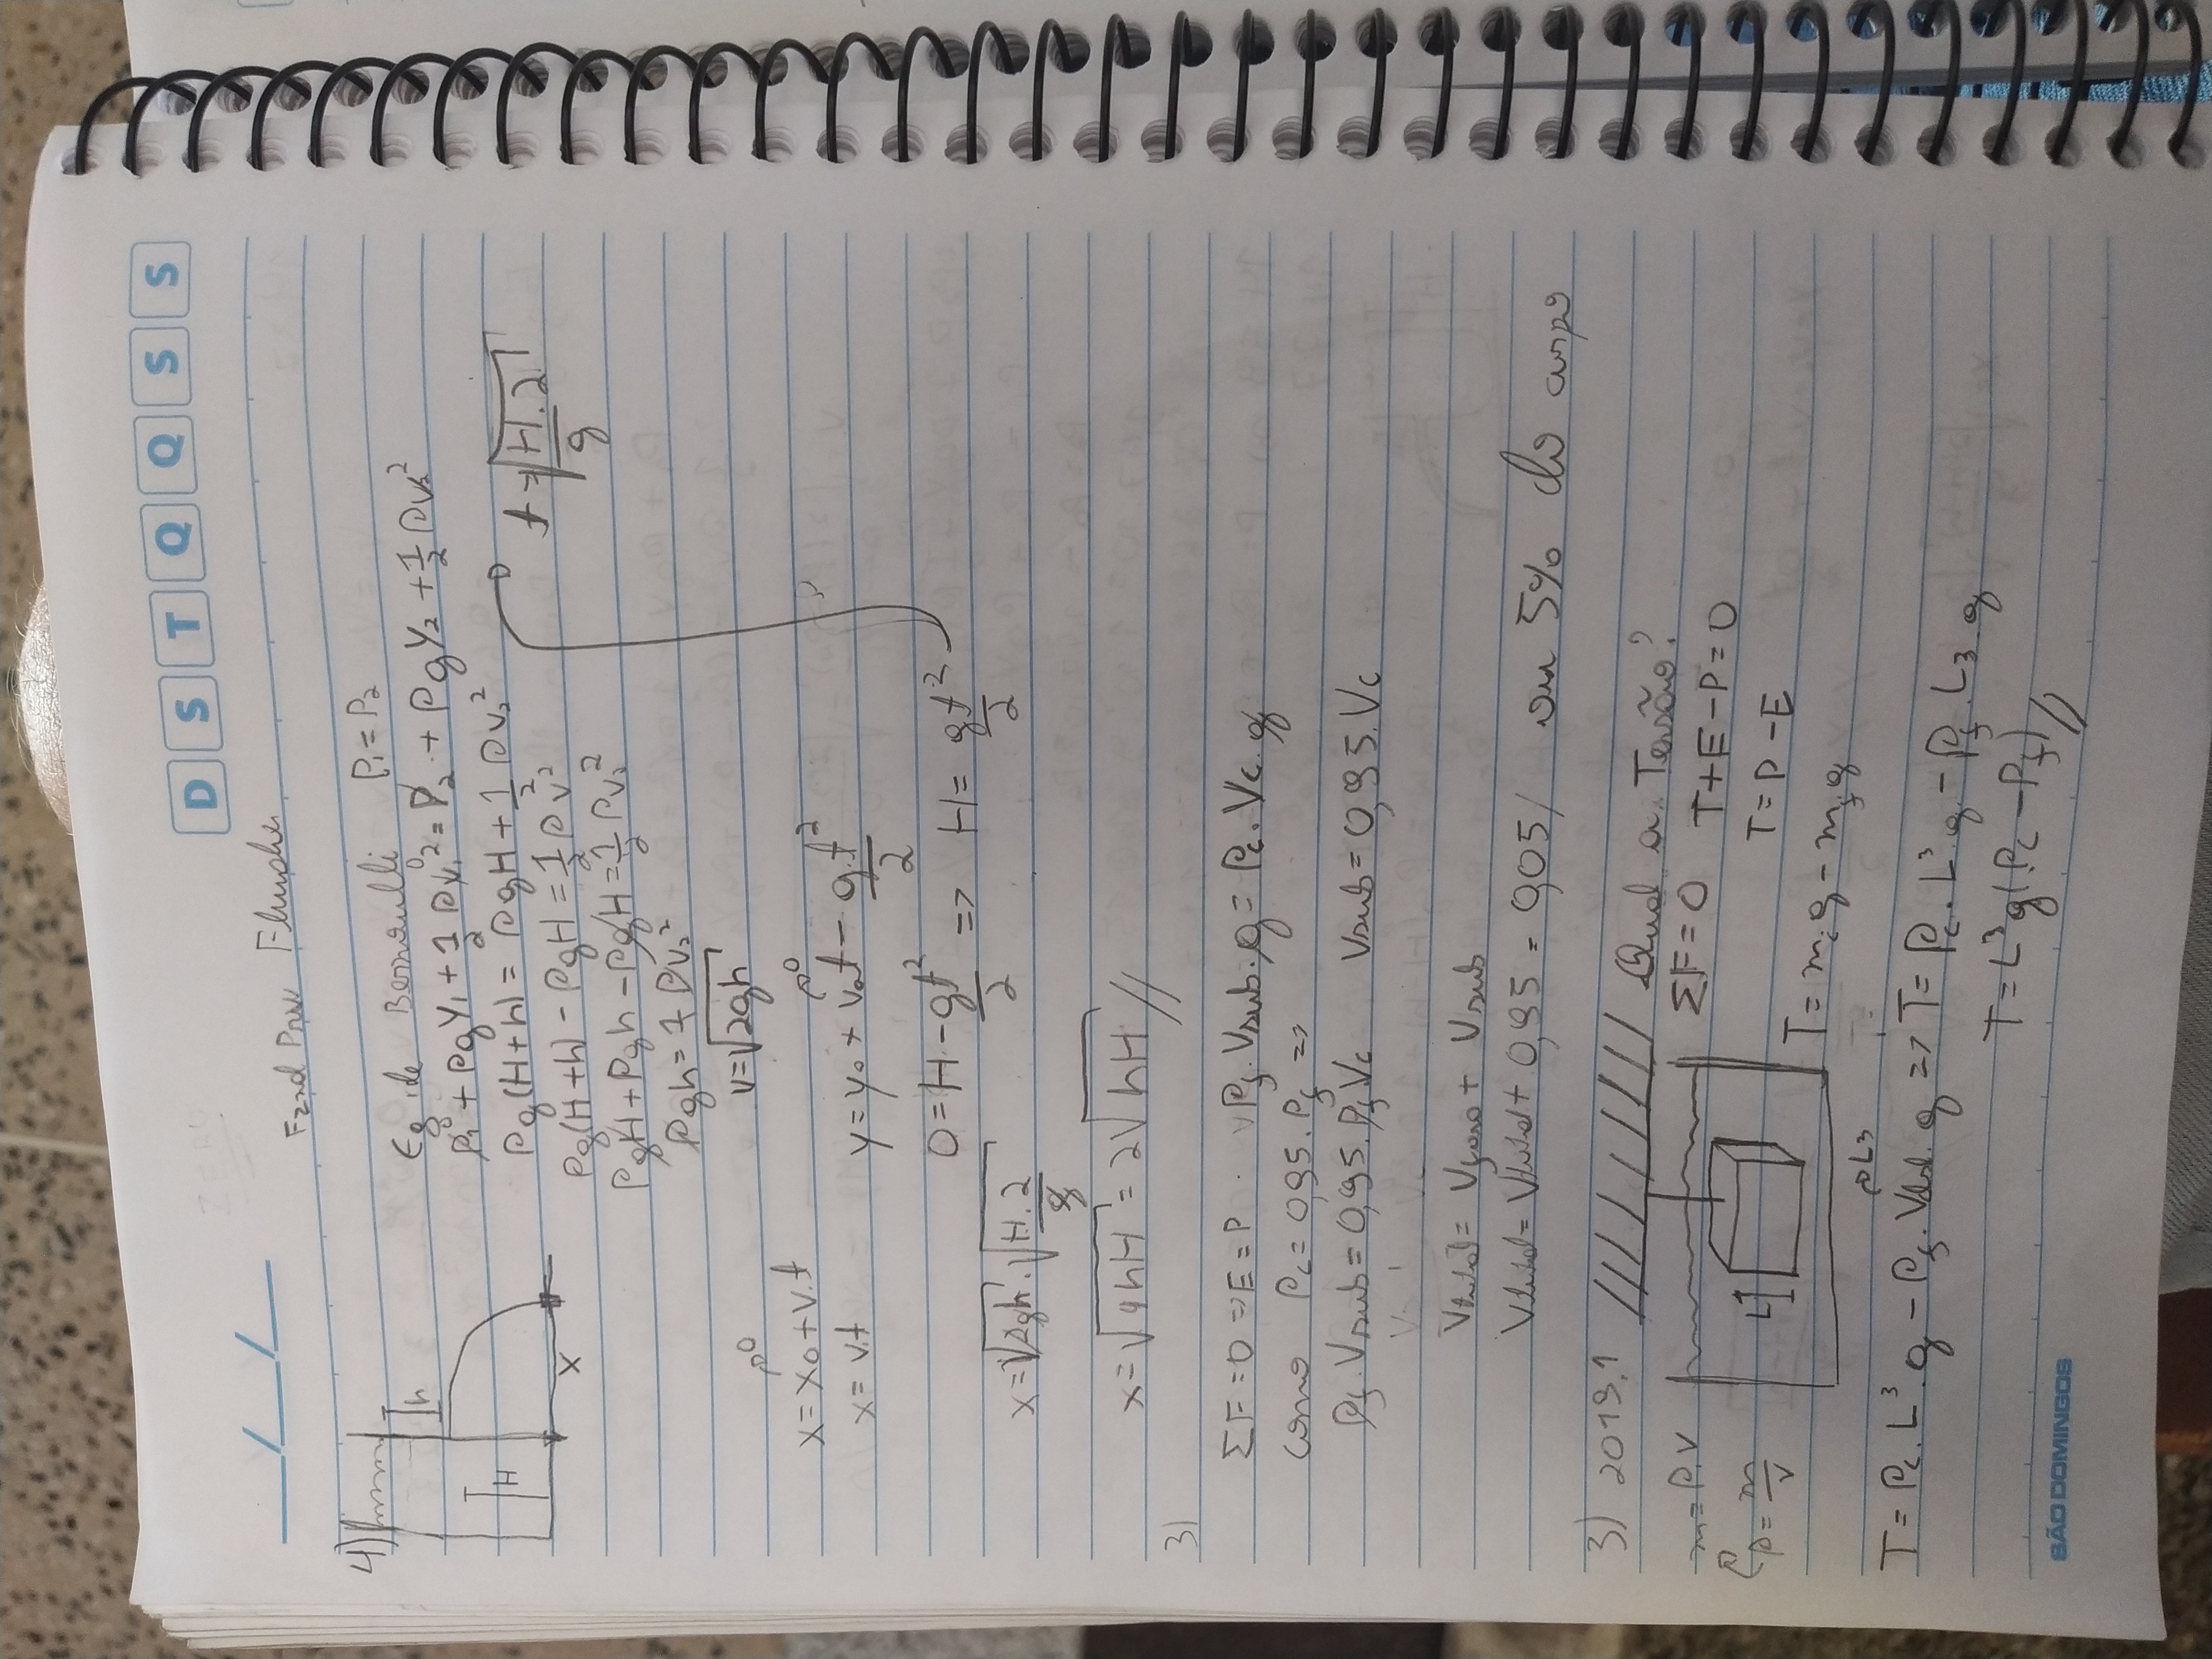 D S T Q Q S S
ZERO
4)
h
H
x
Eq de Bernoulli P₁ = P₂
P₁⁰ + ρgY₁ + 1/2 ρv₁⁰² = P₂ + ρgY₂ + 1/2 ρv₂²
ρg(H+h) = ρgH + 1/2 ρv₂²
t = √(H.2/g)
ρg(H+h) - ρgH = 1/2 ρv²
ρgH + ρgh - ρgH = 1/2 ρv₂²
ρgh = 1/2 ρv₂²
v = √2gh
x = x₀ + v.t
→0
x = v.t
y = y₀ + v₀t - g.t²/2
→0
0 = H - gt²/2 => H = gt²/2
x = √2gh . √(H.2/g)
x = √4hH = 2√hH //
3)
ΣF = 0 => E = P ρf.Vsub.g = ρc.Vc.g
como ρc = 0,95.ρf =>
ρf.Vsub = 0,95.ρf Vc Vsub = 0,95.Vc
Vtotal = Vfora + Vsub
Vtotal = Vtotal + 0,95 = 0,05/ ou 5% do corpo
3) 2019.1 Qual a Tensão?
m = ρ.V
ρ = m/v
L
ΣF = 0 T+E-P = 0
T = P - E
T = mcg - mfg
→L3
T = ρc.L³.g - ρf.Vdsl.g => T = ρc.L³g - ρf.L3.g
T = L³g(ρc - ρf) //
SÃO DOMINGOS